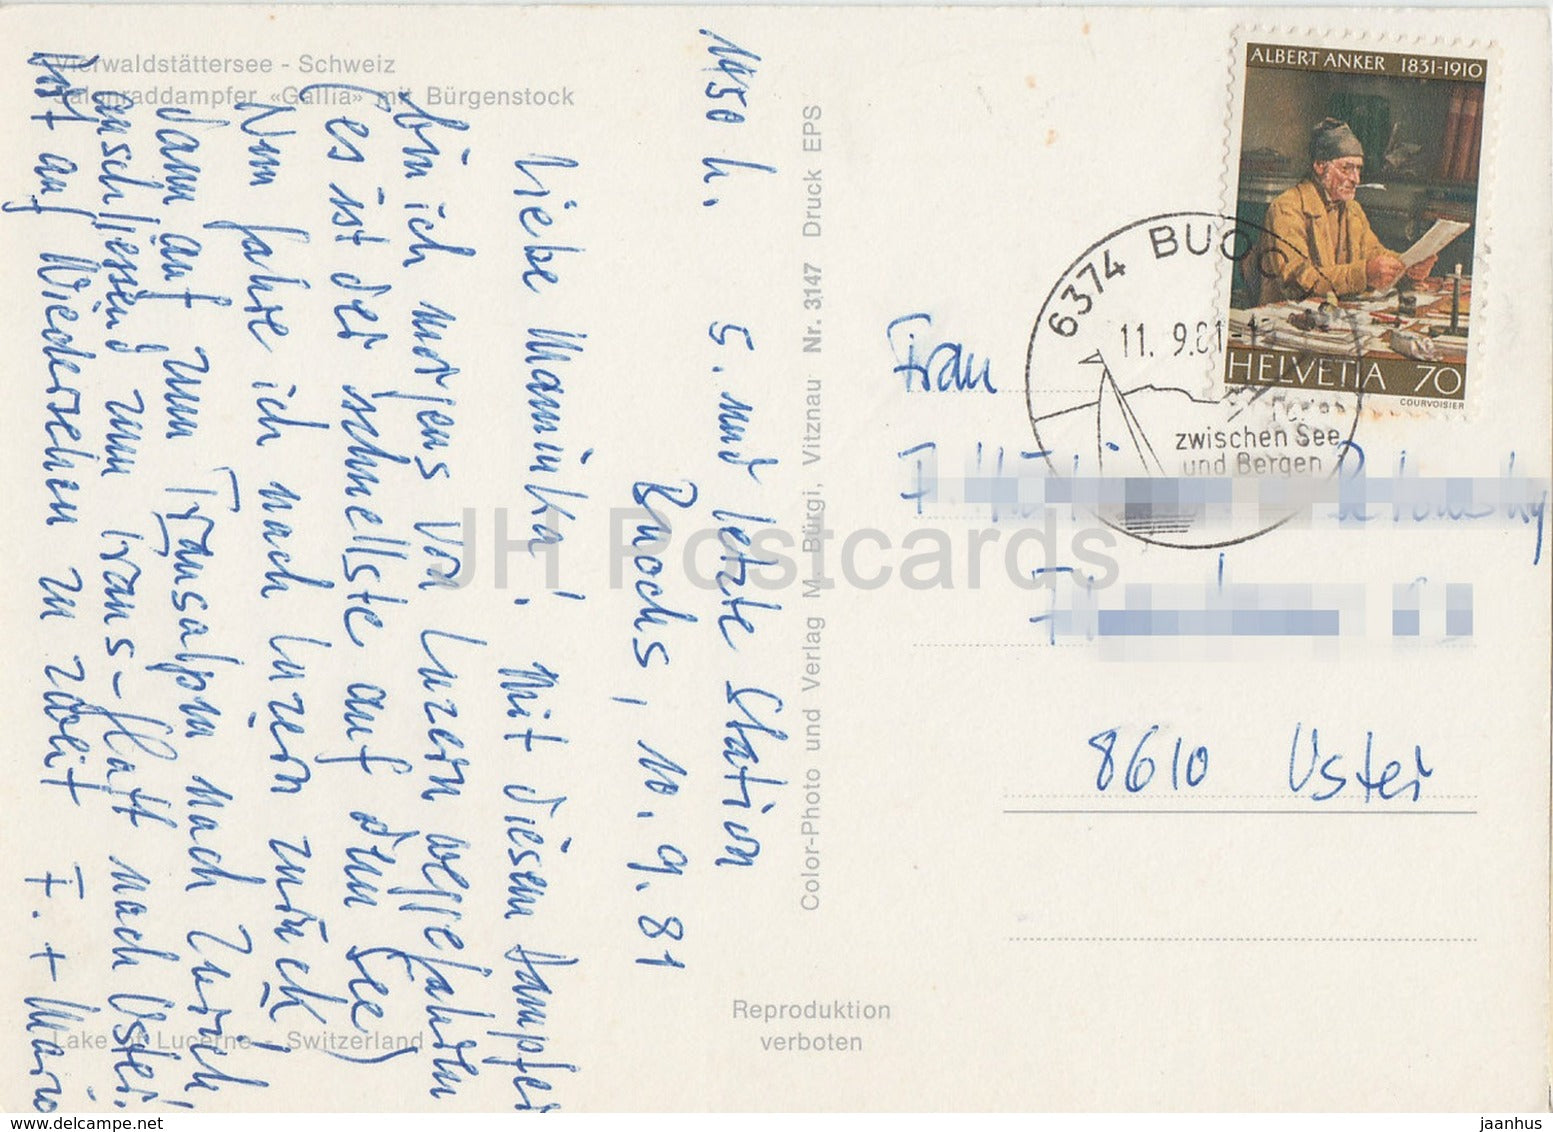 Vierwaldstättersee - Schweiz
Salonraddampfer «Gallia» mit Bürgenstock
1450 h. 5. und letzte Station
Buochs, 10.9.81
Liebe Maminka! Mit diesem Dampfer
bin ich morgens von Luzern weggefahren
(es ist der schnellste auf dem See)
Nun fahre ich nach Luzern zurück
dann auf zum Transalpin nach Zürich
anschliessend zum trans-flatt nach Uster!
Bist auf Wiedersehen zu zweit F. + Mario
Lake of Lucerne - Switzerland
Color-Photo und Verlag M. Bürgi, Vitznau Nr. 3147 Druck EPS
Reproduktion
verboten
ALBERT ANKER 1831-1910
HELVETIA 70
COURVOISIER
6374 BUOCHS
11. 9.81
zwischen See
und Bergen
Frau
8610 Uster
JH Postcards
jaanhus